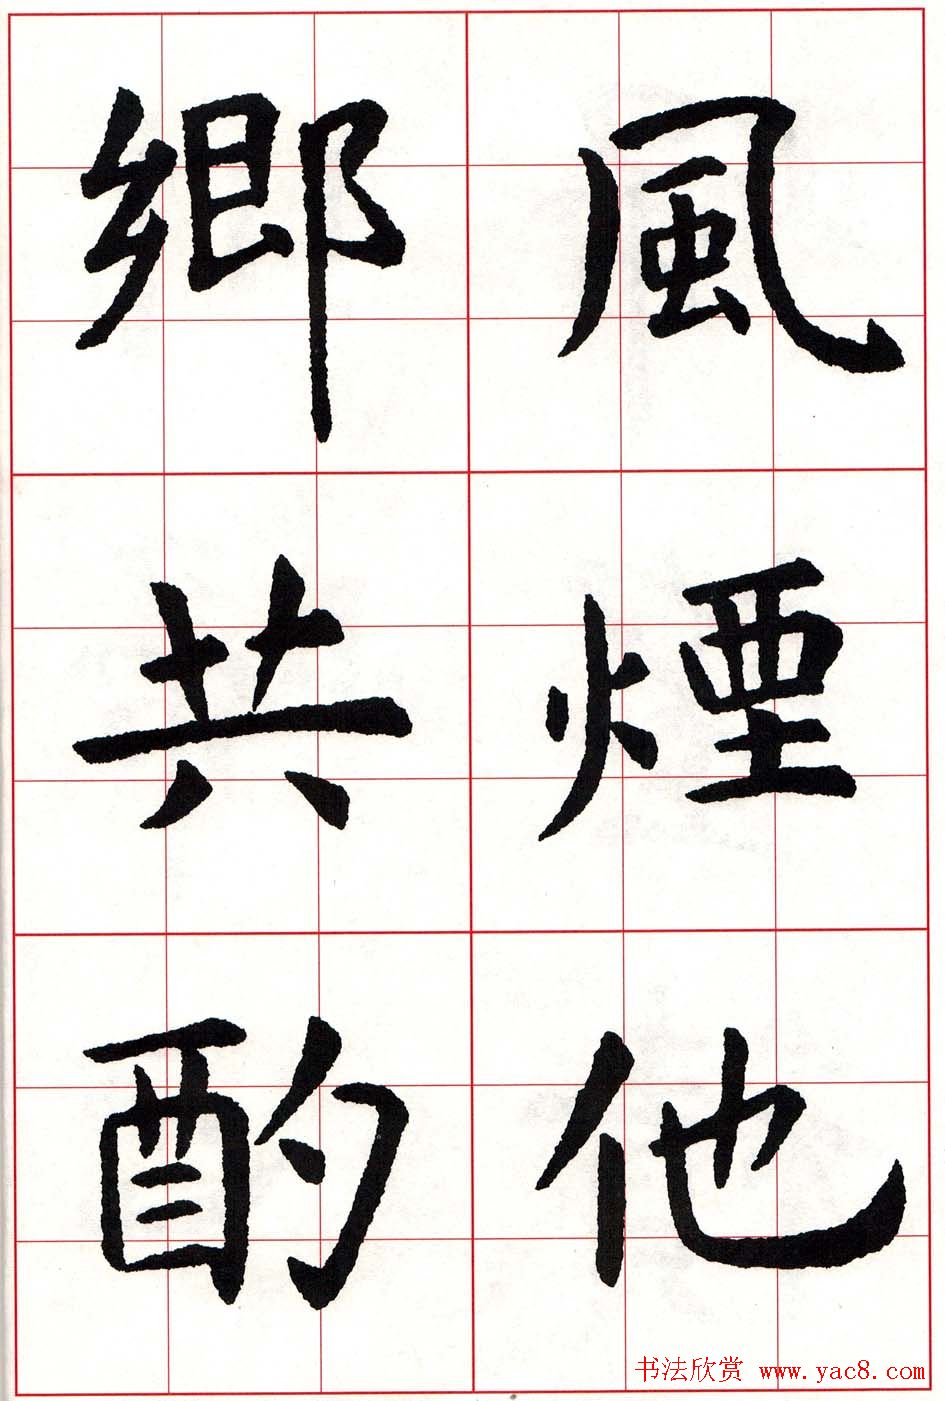 風煙他
鄉共酌
书法欣赏 www.yac8.com